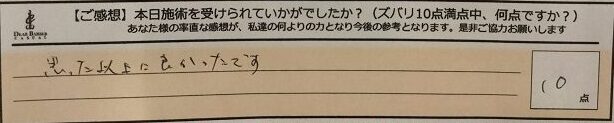 【ご感想】本日施術を受けられていかがでしたか?(ズバリ10点満点中、何点ですか?)
あなた様の率直な感想が、私達の何よりの力となり今後の参考となります。是非ご協力お願いします
DEAR BARBER
CASUAL
思った以上に良かったです
10
点